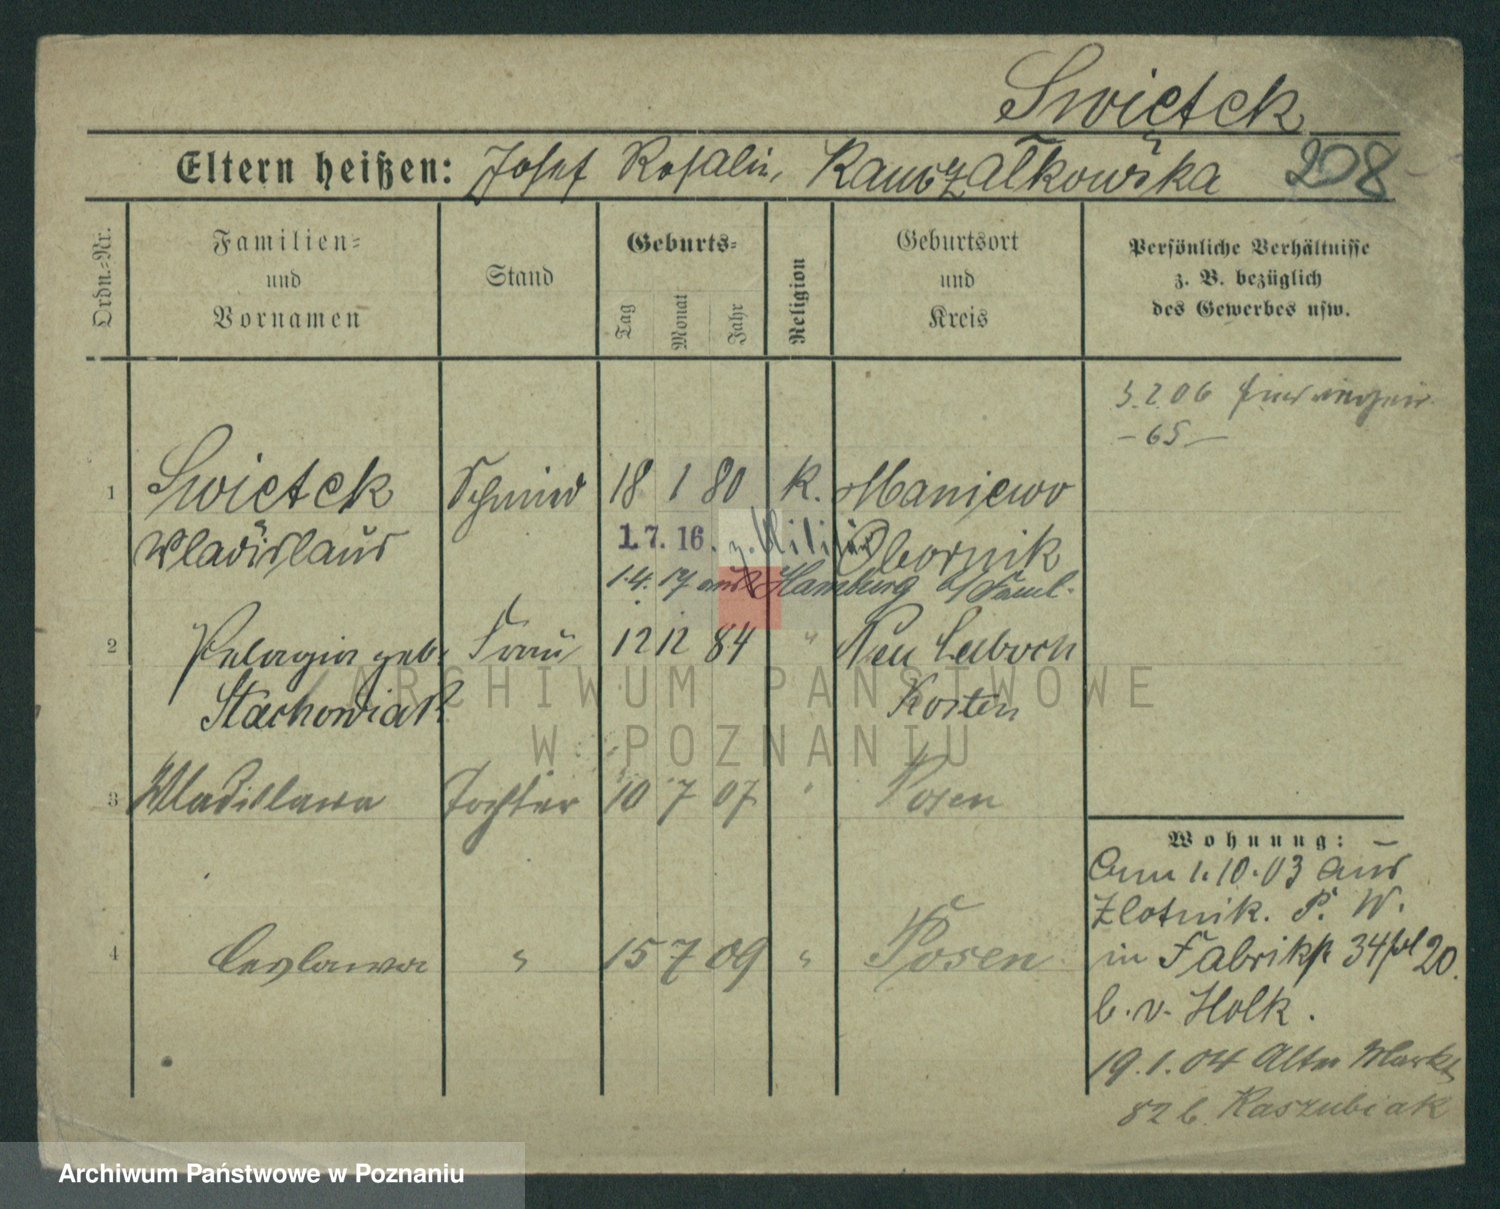 Swietek
Eltern heißen: Josef Rosalie, Kawczałkowska 208
Ordn.=Nr.
Familien=
und
Vornamen
Stand
Geburts=
Tag Monat Jahr
Religion
Geburtsort
und
Kreis
Persönliche Verhältnisse
z. B. bezüglich
des Gewerbes usw.
3.2.06
- 65 -
1 Swietek Schmied 18 1 80 K. Maniewo
Wladislaus 1.7.16. z. Obornik
1.4.17 aus Hamburg
2 Pelagia geb. Frau 12 12 84 " Neu
Stachowiak Kosten
3 Wladislawa Tochter 10 7 07 " Posen
4 Ceslawa " 15 7 09 " Posen
Wohnung:
1.10.03 aus
Zlotnik. P. W.
in Fabrikstr 34 20.
b. v. Holk.
19.1.04 Alter Markt
82 b. Kaszubiak
ARCHIWUM PAŃSTWOWE
W POZNANIU
Archiwum Państwowe w Poznaniu